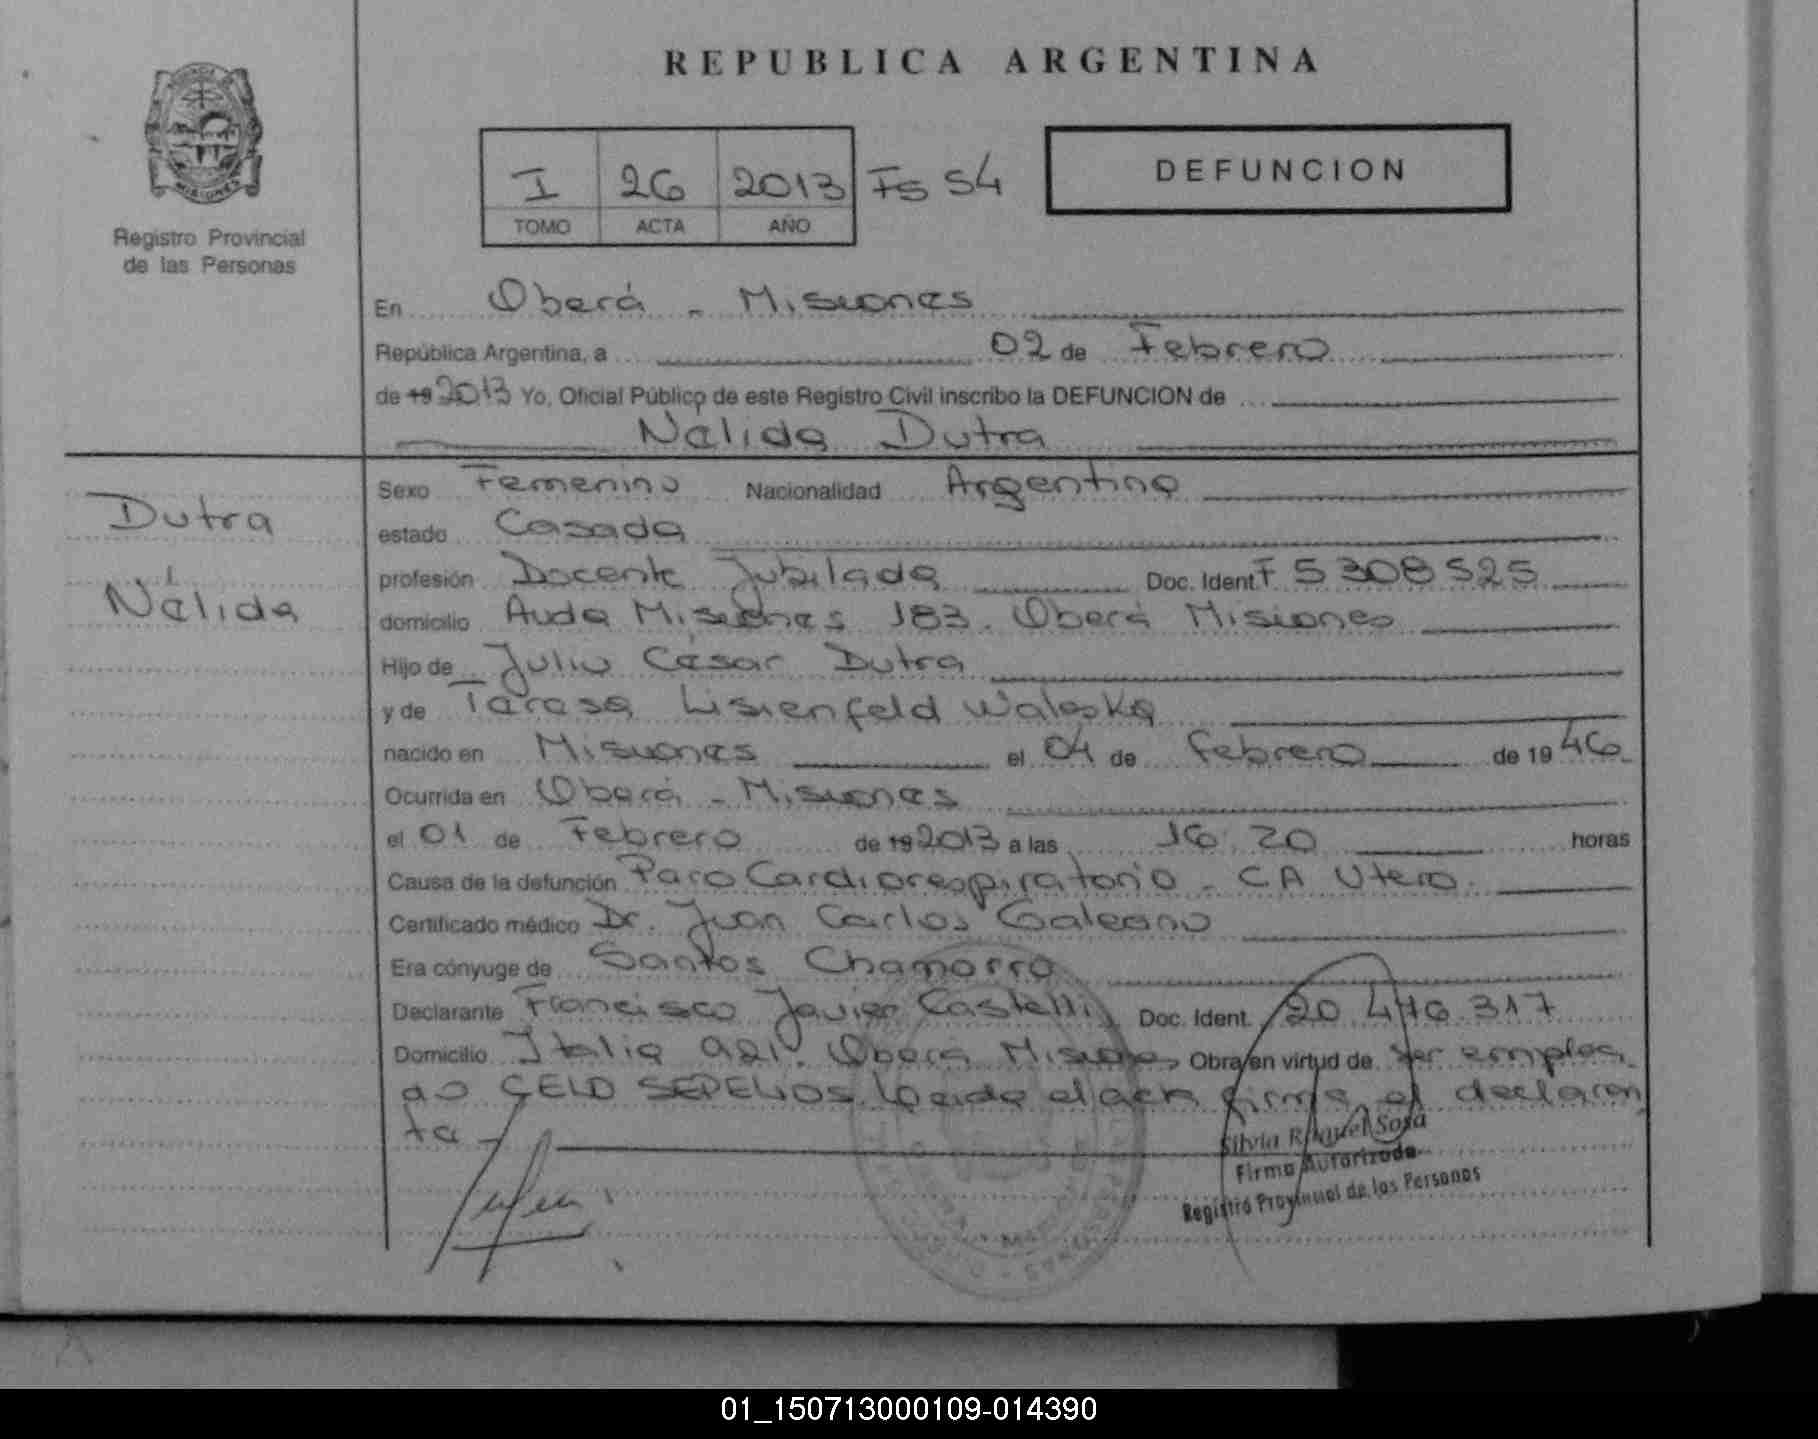 REPUBLICA ARGENTINA
I 26 2013 Fs 54
TOMO ACTA AÑO
DEFUNCION
MISIONES
Registro Provincial
de las Personas
En Oberá - Misiones
República Argentina, a 02 de Febrero
de 19 2013 Yo, Oficial Público de este Registro Civil inscribo la DEFUNCION de
Nelida Dutra
Dutra
Nélida
Sexo Femenino Nacionalidad Argentina
estado Casada
profesión Docente Jubilada Doc. Ident. F 5308525
domicilio Avda Misiones 183. Oberá Misiones
Hijo de Julio Cesar Dutra
y de Teresa Lisienfeld Waleska
nacido en Misiones el 04 de febrero de 19 46
Ocurrida en Oberá - Misiones
el 01 de Febrero de 19 2013 a las 16:20 horas
Causa de la defunción Paro Cardiorespiratorio - CA Utero.
Certificado médico Dr. Juan Carlos Galeano
Era cónyuge de Santos Chamorro
Declarante Francisco Javier Castelli Doc. Ident. 20.476.317
Domicilio Italia 921. Oberá Misiones Obra en virtud de ser emplea
do CELO SEPELIOS. Leida el acta firma el declaran
te -
Silvia Raquel Sosa
Firma Autorizada
Registro Provincial de las Personas
01_150713000109-014390